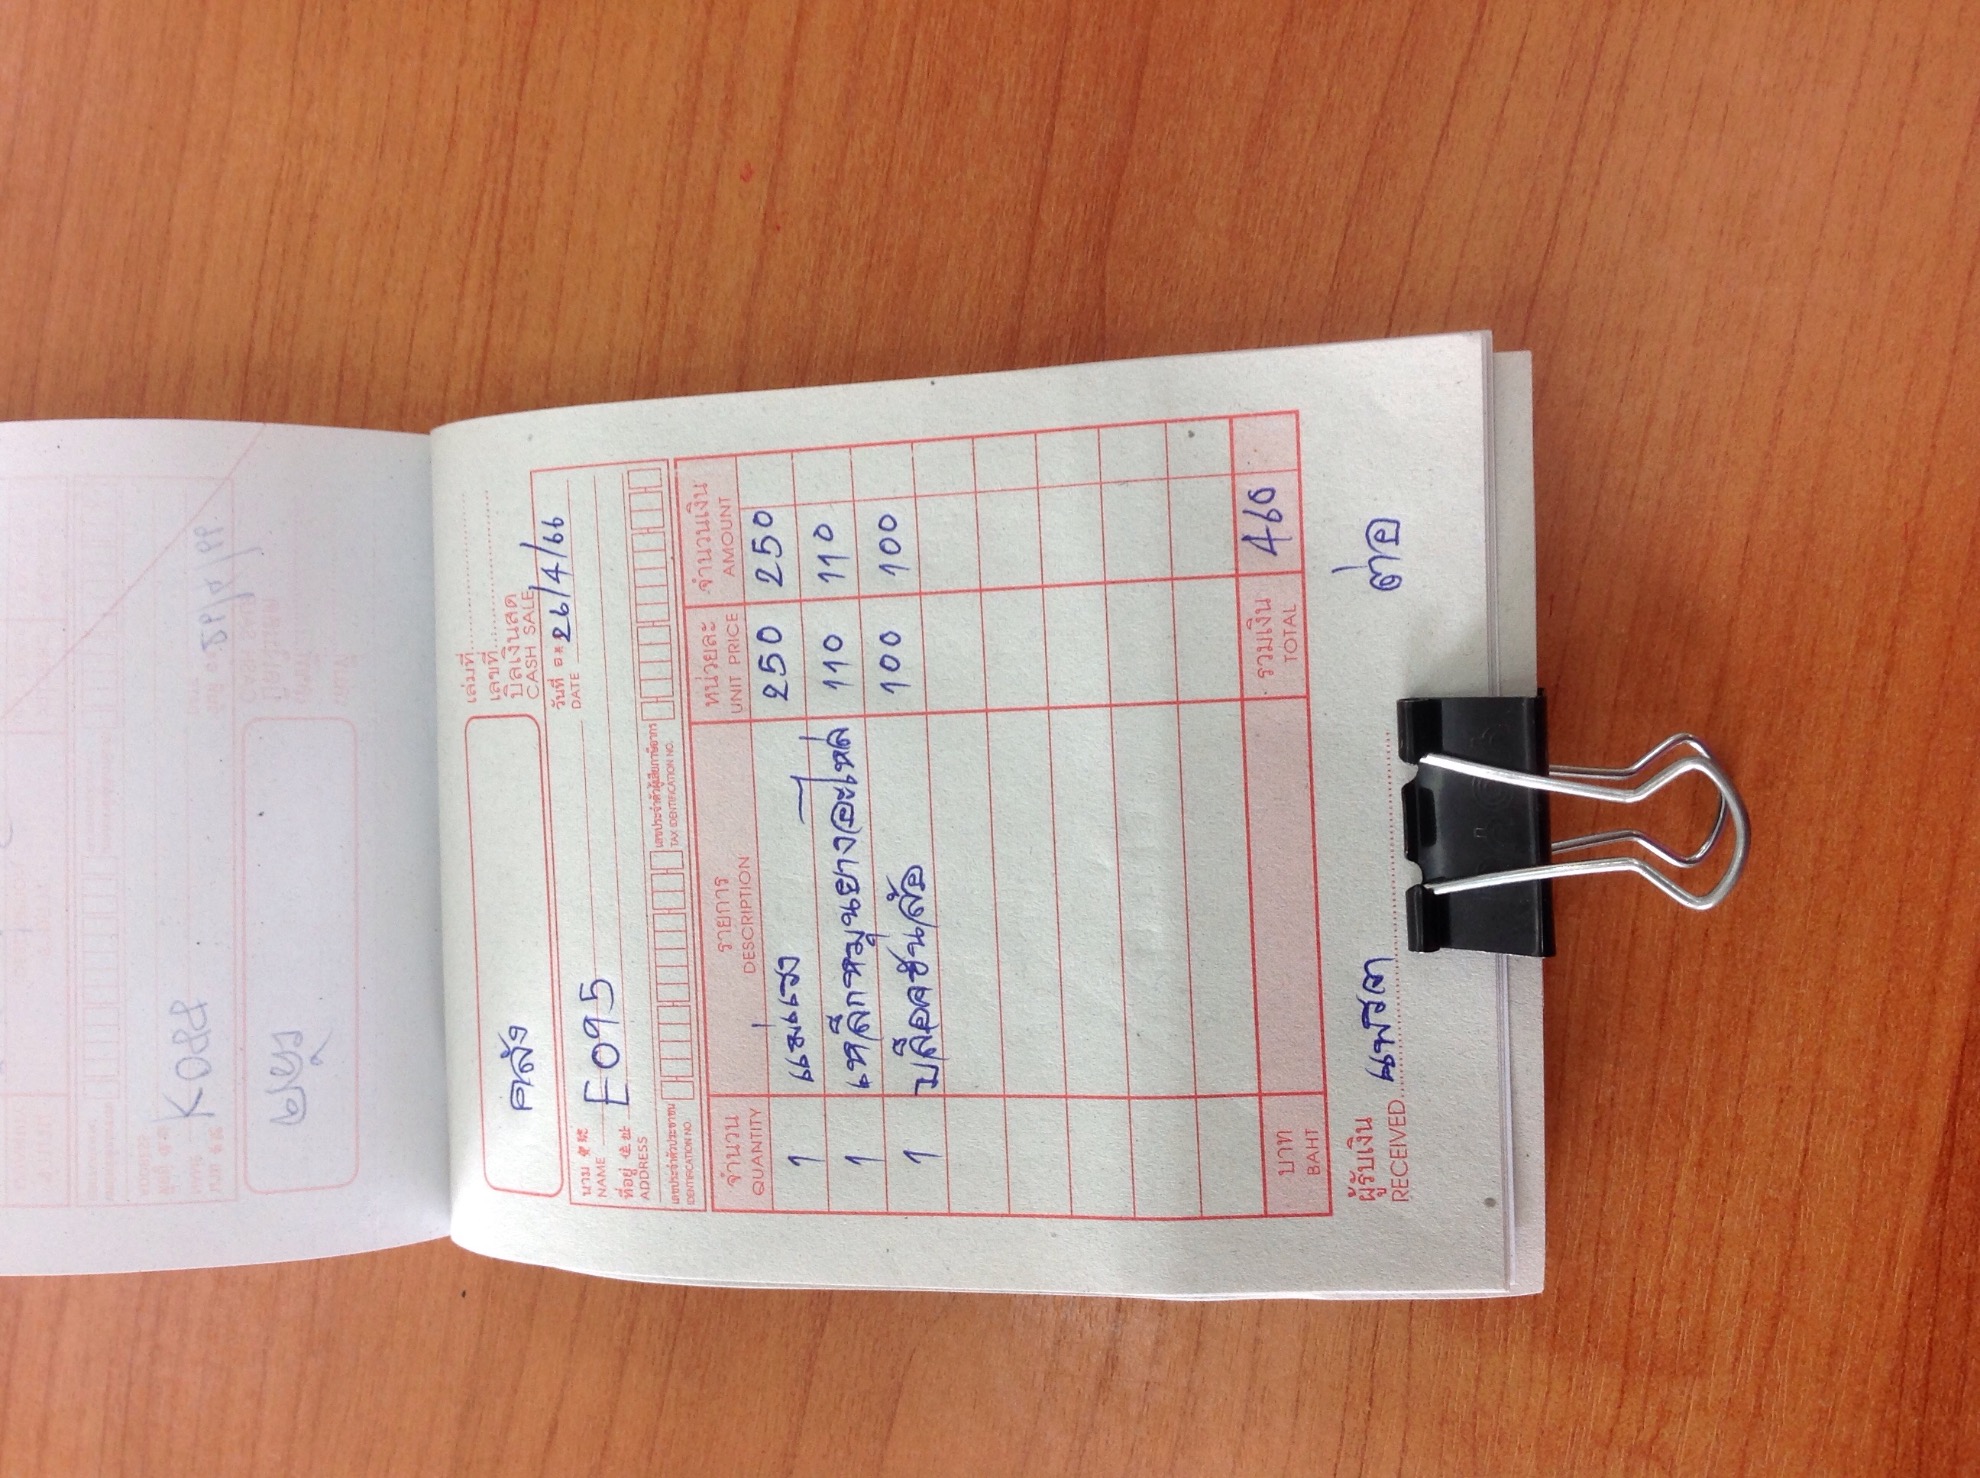 เล่มที่
เลขที่
คลัง
บิลเงินสด
CASH SALE
วันที่ 26/4/66
DATE
นาม
NAME E095
ที่อยู่
ADDRESS
เลขประจำตัวประชาชน เลขประจำตัวผู้เสียภาษีอากร
IDENTIFICATION NO. TAX IDENTIFICATION NO.
จำนวน รายการ หน่วยละ จำนวนเงิน
QUANTITY DESCRIPTION UNIT PRICE AMOUNT
1 แม่แรง 250 250
1 เหล็กหมุนยางอะไหล่ 110 110
1 บล๊อคขันล้อ 100 100
บาท รวมเงิน 460
BAHT TOTAL
ผู้รับเงิน
RECEIVED ต่อ
K088